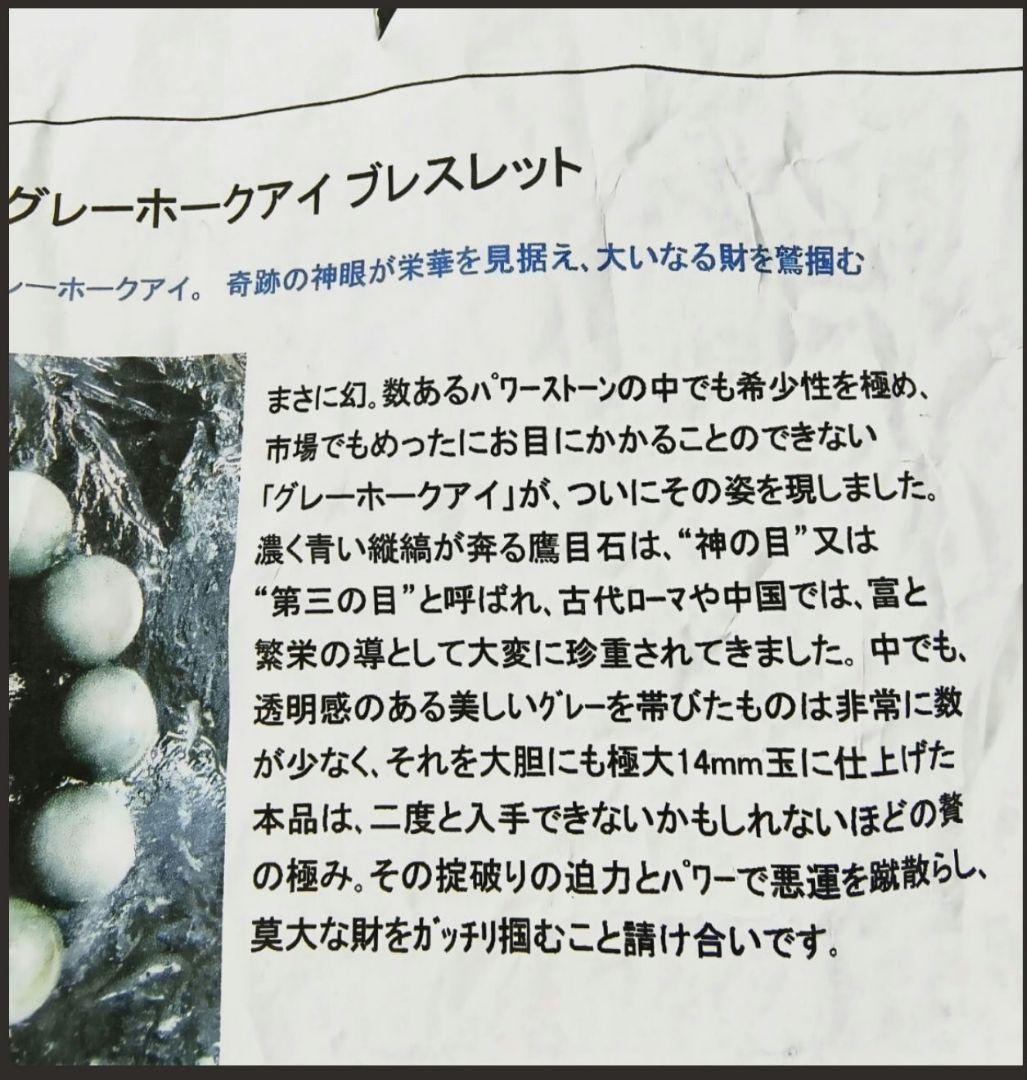 グレーホークアイ ブレスレット
レーホークアイ。 奇跡の神眼が栄華を見据え、大いなる財を鷲掴む
まさに幻。数あるﾊﾟﾜｰｽﾄｰﾝの中でも希少性を極め、
市場でもめったにお目にかかることのできない
「グレーホークアイ」が、ついにその姿を現しました。
濃く青い縦縞が奔る鷹目石は、“神の目”又は
“第三の目”と呼ばれ、古代ﾛｰﾏや中国では、富と
繁栄の導として大変に珍重されてきました。中でも、
透明感のある美しいｸﾞﾚｰを帯びたものは非常に数
が少なく、それを大胆にも極大14mm玉に仕上げた
本品は、二度と入手できないかもしれないほどの贅
の極み。その掟破りの迫力とﾊﾟﾜｰで悪運を蹴散らし、
莫大な財をｶﾞｯﾁﾘ掴むこと請け合いです。